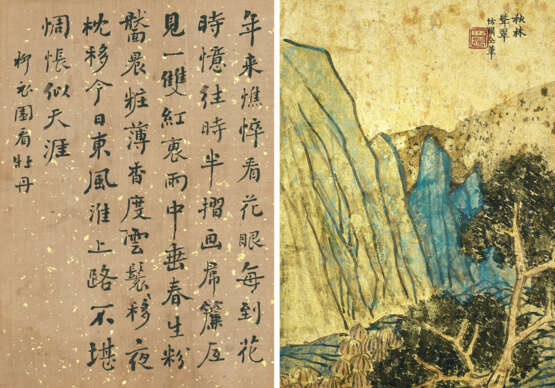 年来憔悴看花眼每到花
時憶往時半摺画屏簾底
見一雙紅褎雨中垂春生粉
靨晨粧薄香度雲鬟移夜
枕移今日東風淮上路不堪
惆悵似天涯
柳衣園看牡丹
秋林
聳翠